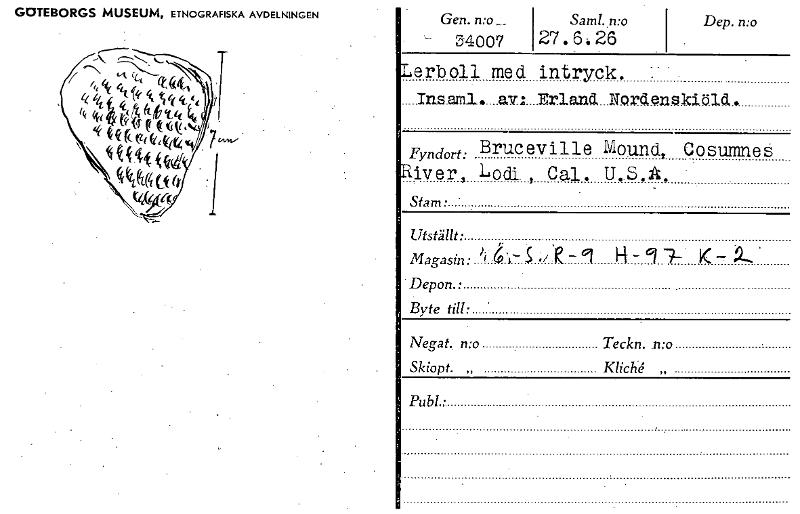 GÖTEBORGS MUSEUM, ETNOGRAFISKA AVDELNINGEN
7 cm
Gen. n:o Saml. n:o Dep. n:o
34007 27.6.26
Lerboll med intryck.
Insaml. av: Erland Nordenskiöld.
Fyndort: Bruceville Mound, Cosumnes
River, Lodi, Cal. U.S.A.
Stam:
Utställt:
Magasin: 6-S. R-9 H-97 K-2
Depon.:
Byte till:
Negat. n:o Teckn. n:o
Skiopt. „ Kliché „
Publ.: